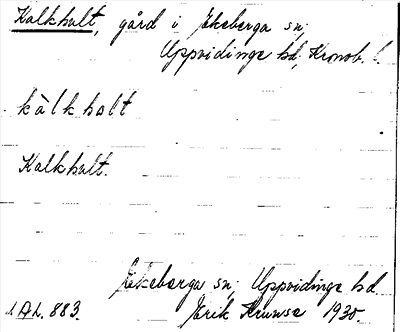 Kalkhult, gård i Ekeberga sn;
Uppvidinge hd, Kronob. l.
kàlkholt
Kalkhult.
Ekeberga sn. Uppvidinge hd
Erik 1930